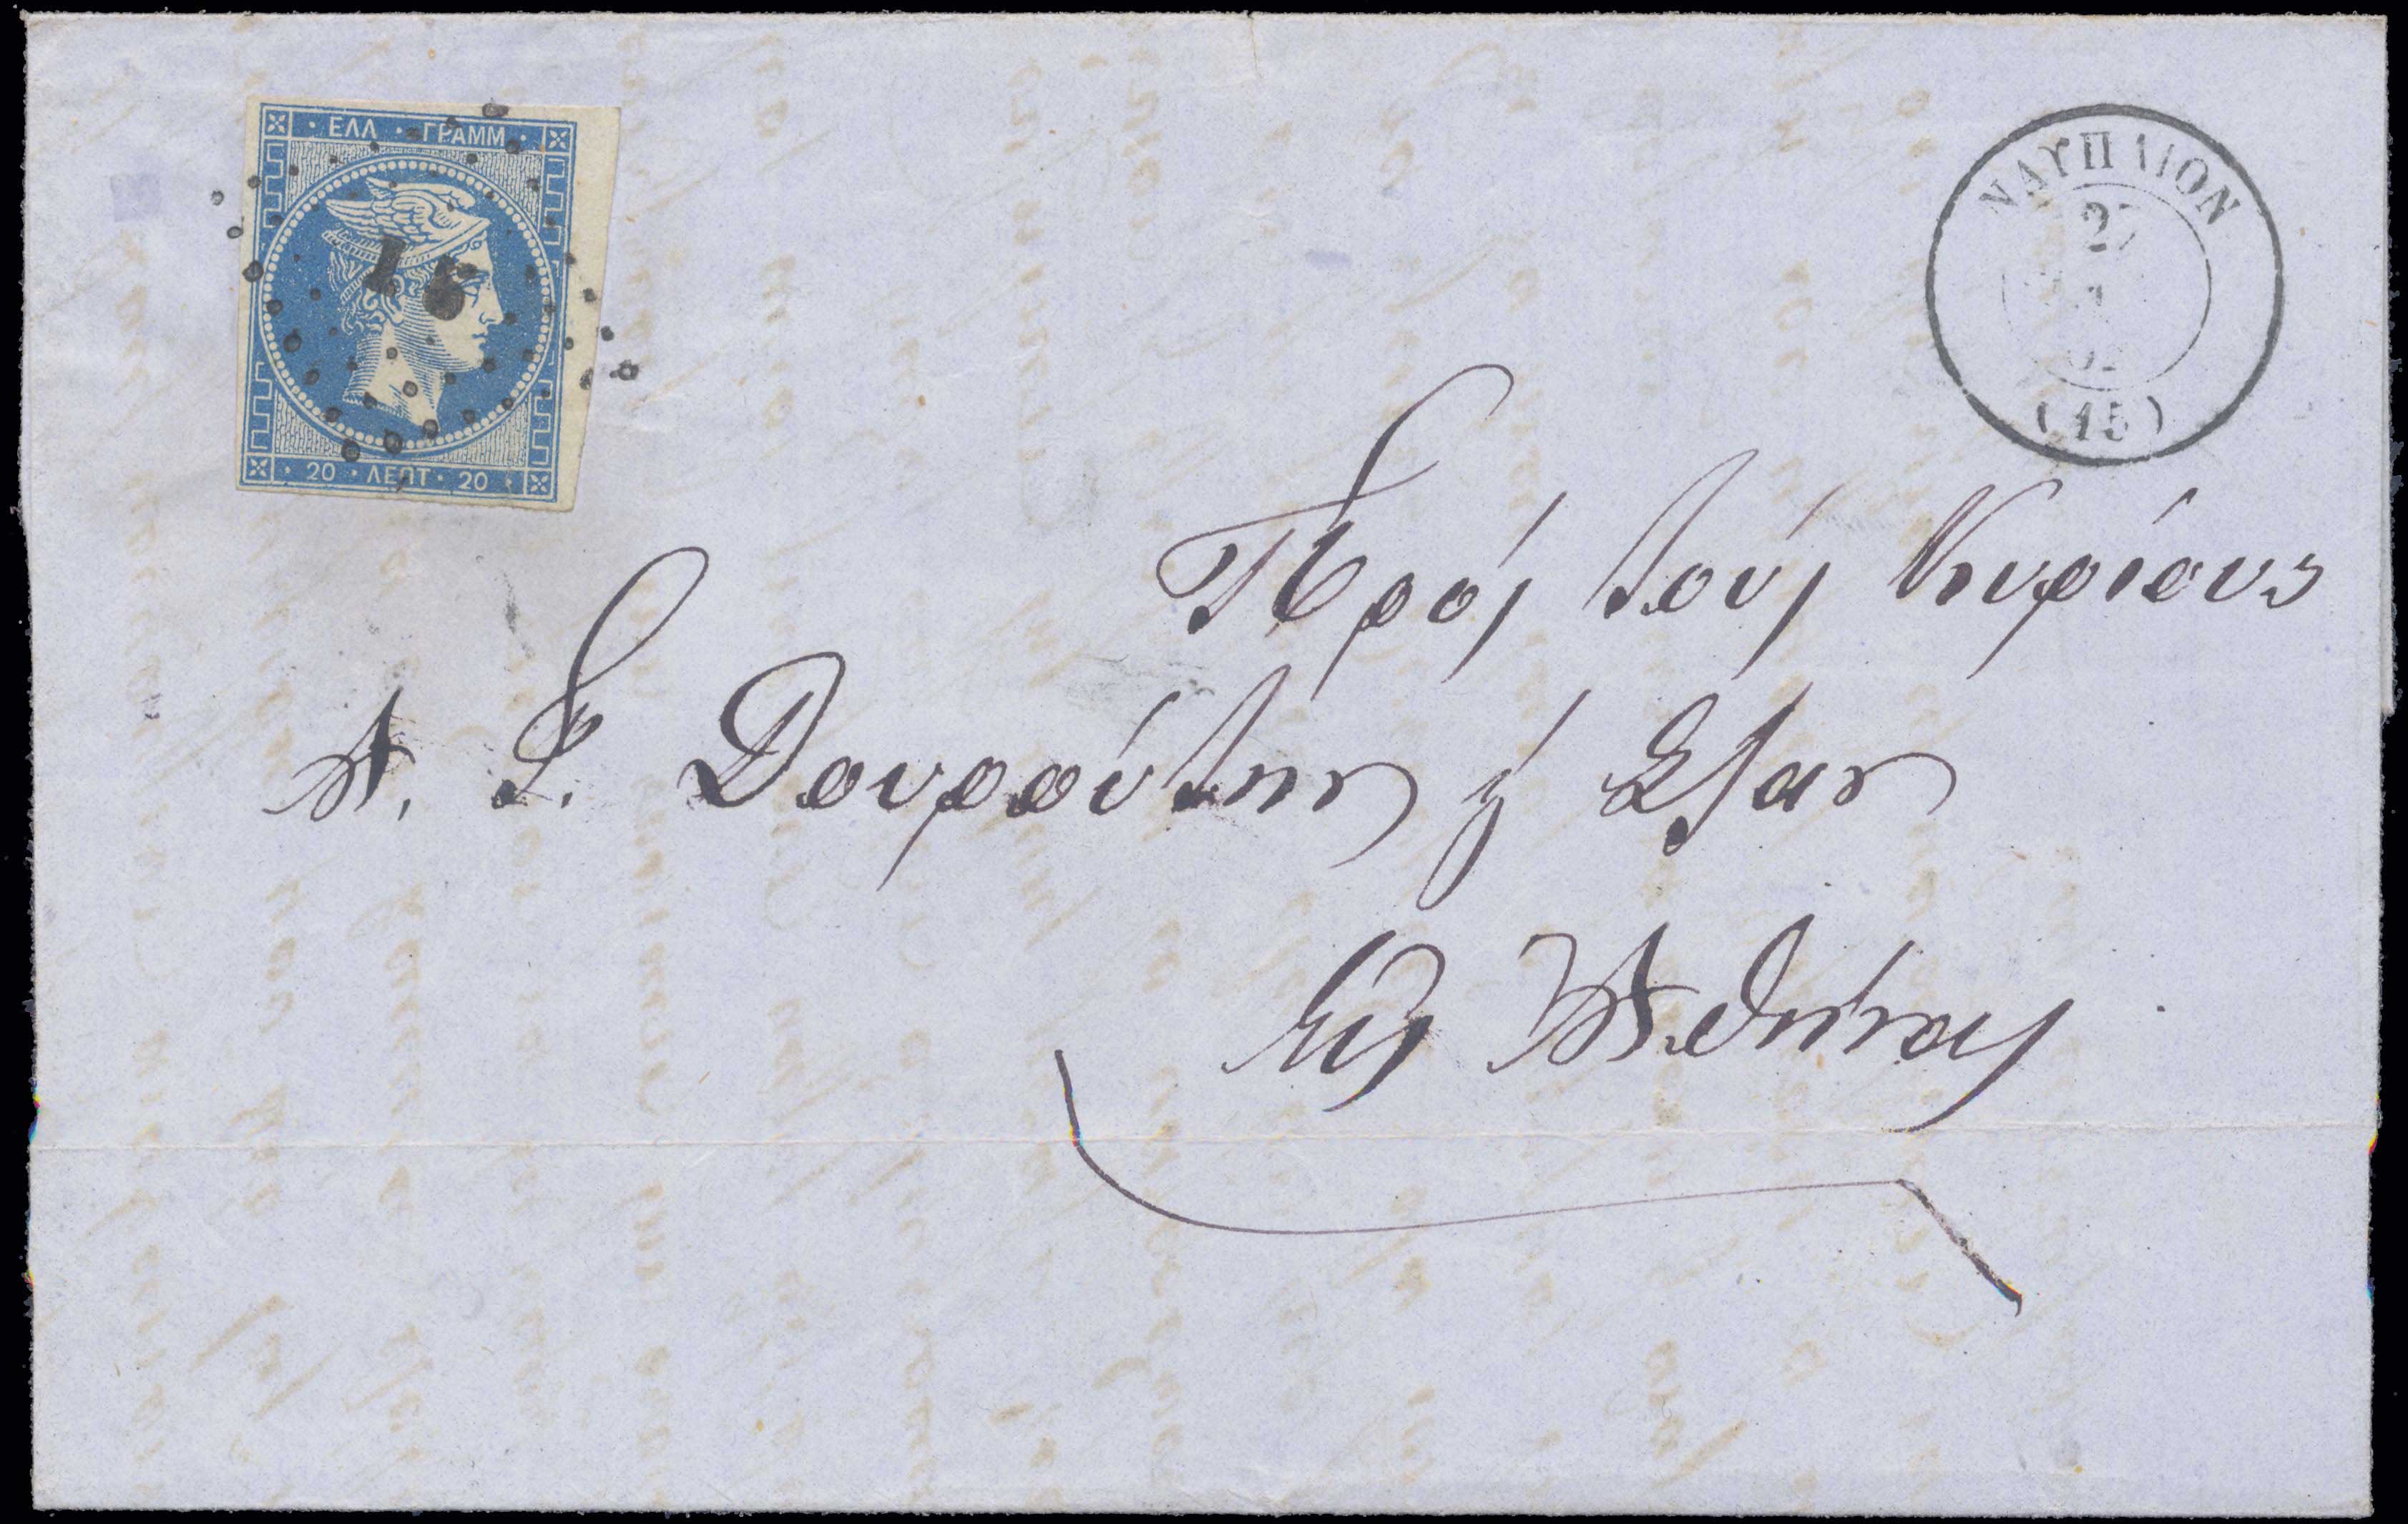 ΕΛΛ · ΓΡΑΜΜ
20 · ΛΕΠΤ · 20
ΝΑΥΠΛΙΟΝ
27
(15)
Πρός τούς Κυρίους
Α. Σ. Δουρούτην
Εις Ἀθήνας